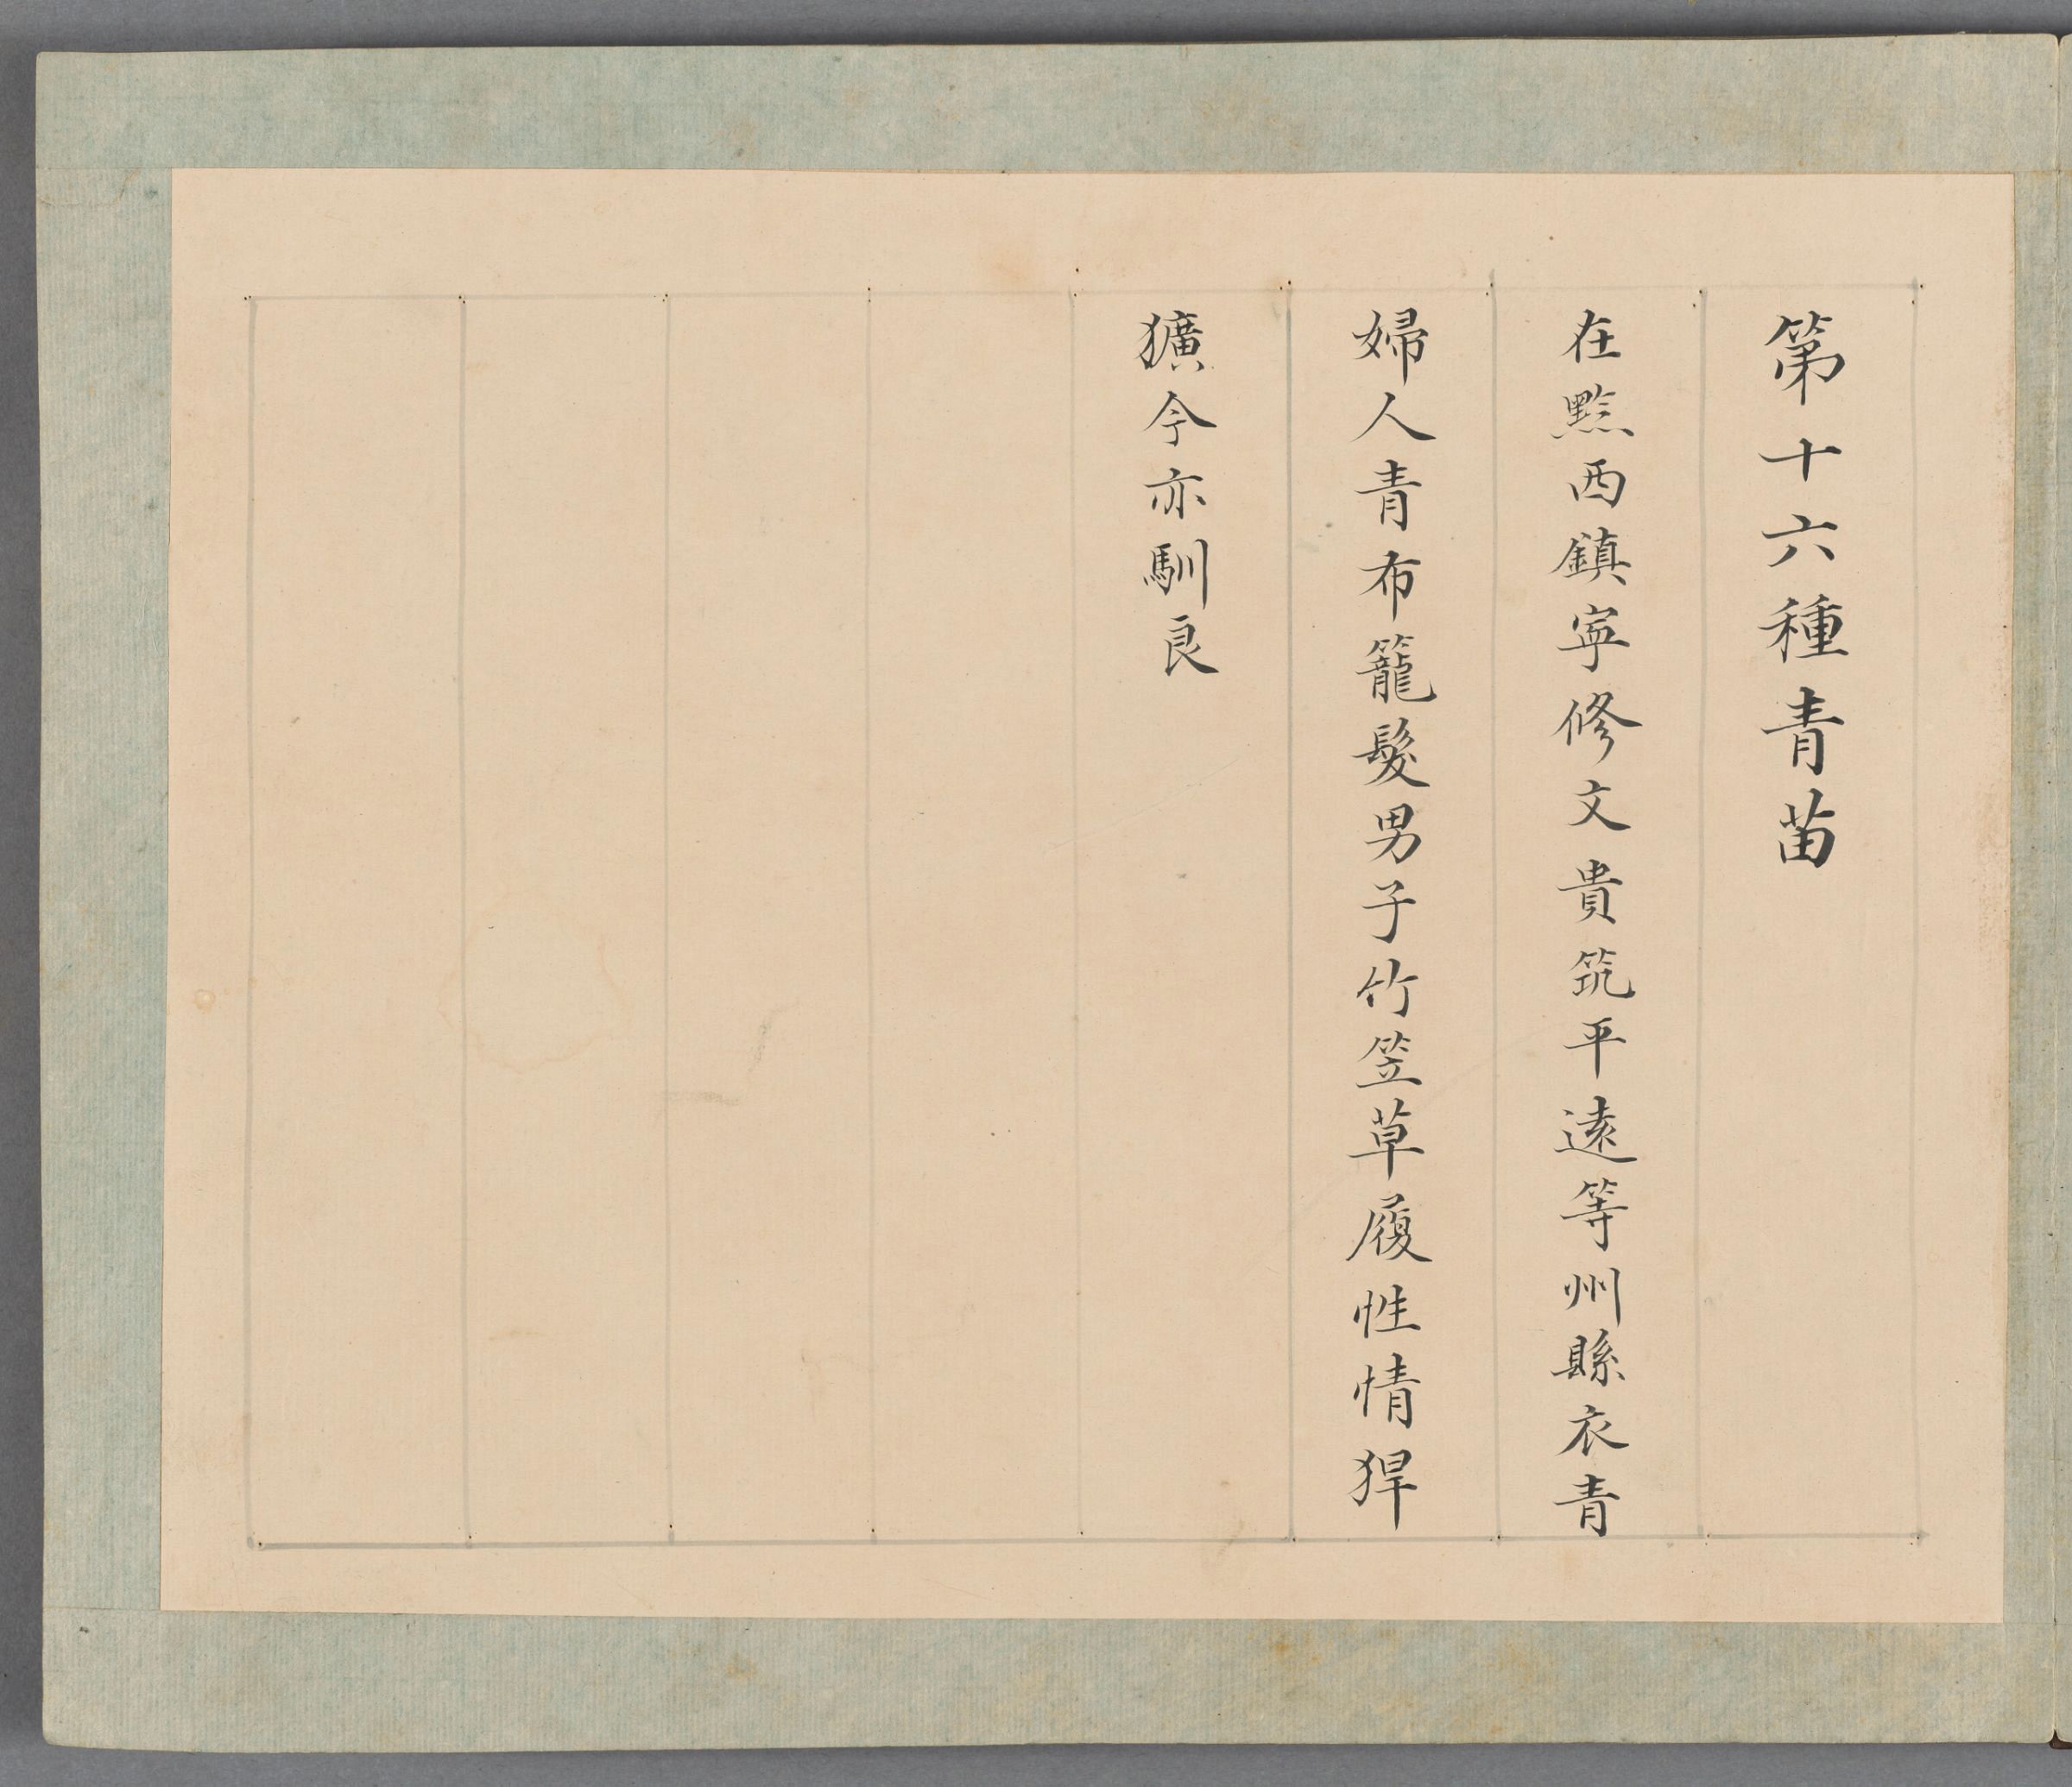 第十六種青苗
在黔西鎮寧修文貴筑平遠等州縣衣青
婦人青布籠髮男子竹笠草履性情猂
獷今亦馴良